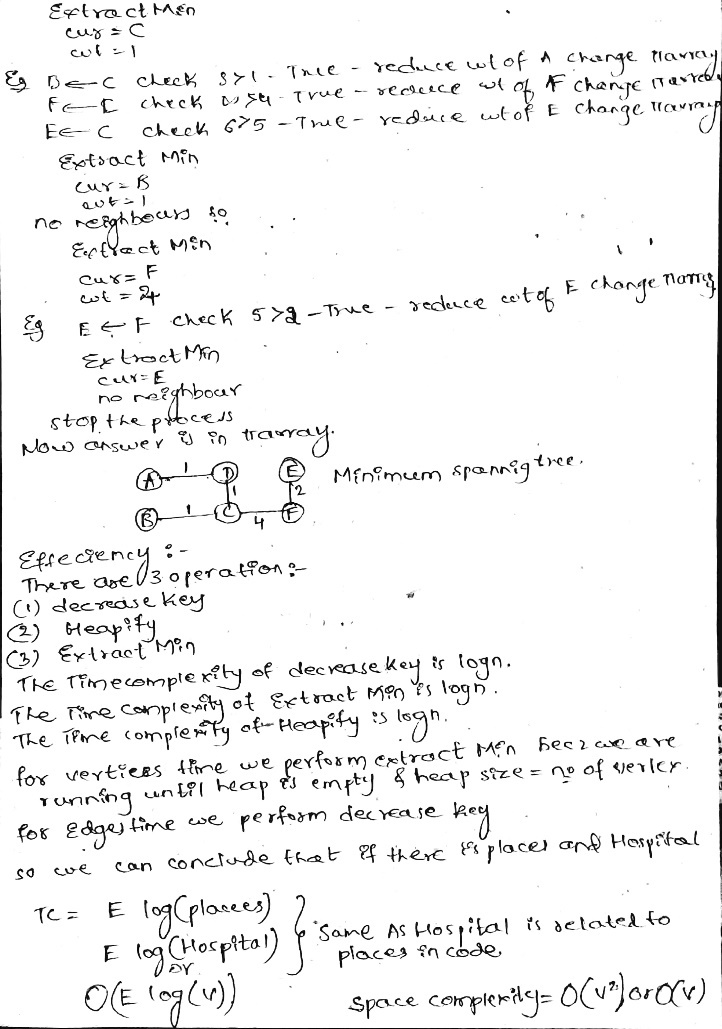 Extract Min
cur = C
wt = 1
Eg B ← C check 3>1 - True - reduce wt of A change Tarray
F ← C check >4 - True - redecce wt of F change Tarray
E ← C check 6>5 - True - reduce wt of E change Tarray
Extract Min
cur = B
wt = 1
no neighbours so
Extract Min
cur = F
wt = 4
Eg E ← F check 5>2 - True - reduce wt of E change Tarray
Extract Min
cur = E
no neighbour
stop the process
Now answer is in tarray.
A 1 D E Minimum spannig tree.
1 2
B 1 C 4 F
Effeciency :-
There are 3 operation :-
(1) decrease key
(2) Heapify
(3) Extract Min
The Timecomplexity of decreasekey is logn.
The Time complexity of Extract Min is logn.
The Time complexity of Heapify is logn.
for vertices time we perform extract Min we are
running until heap is empty & heap size = no of vertex.
for Edges time we perform decrease key
so we can conclude that if there is places and Hospital
TC = E log(placees)
E log(Hospital) } Same As Hospital is related to
or places in code
O(E log(v)) space complexity = O(v²) or O(v)